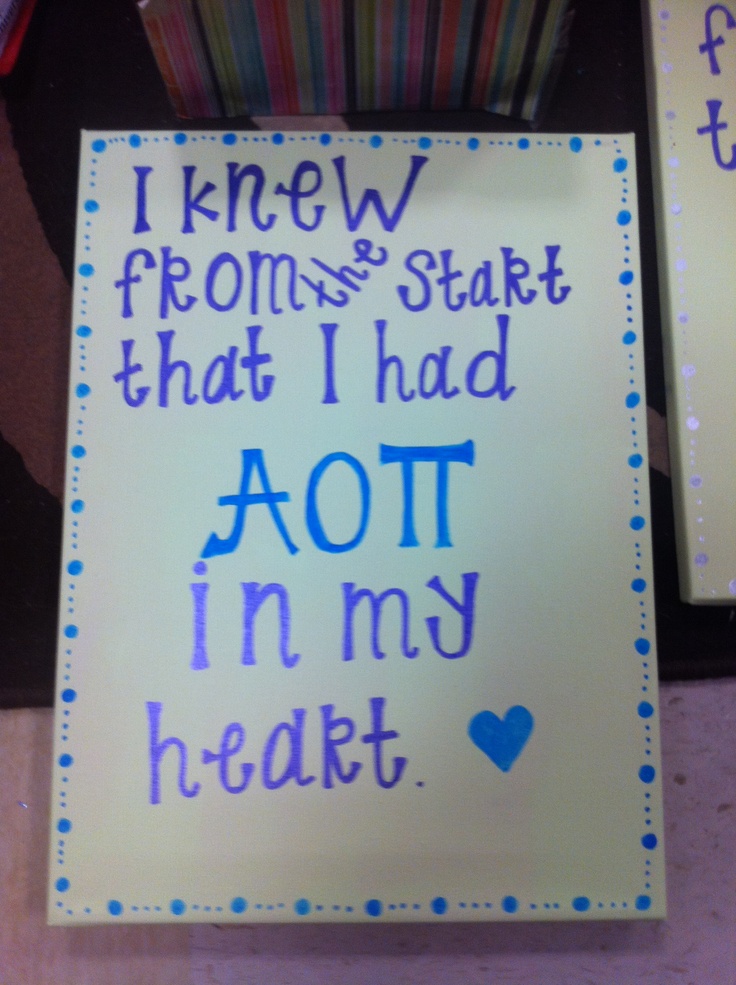 I knew
from the start
that I had
ΑΟΠ
in my
heart.
f
t